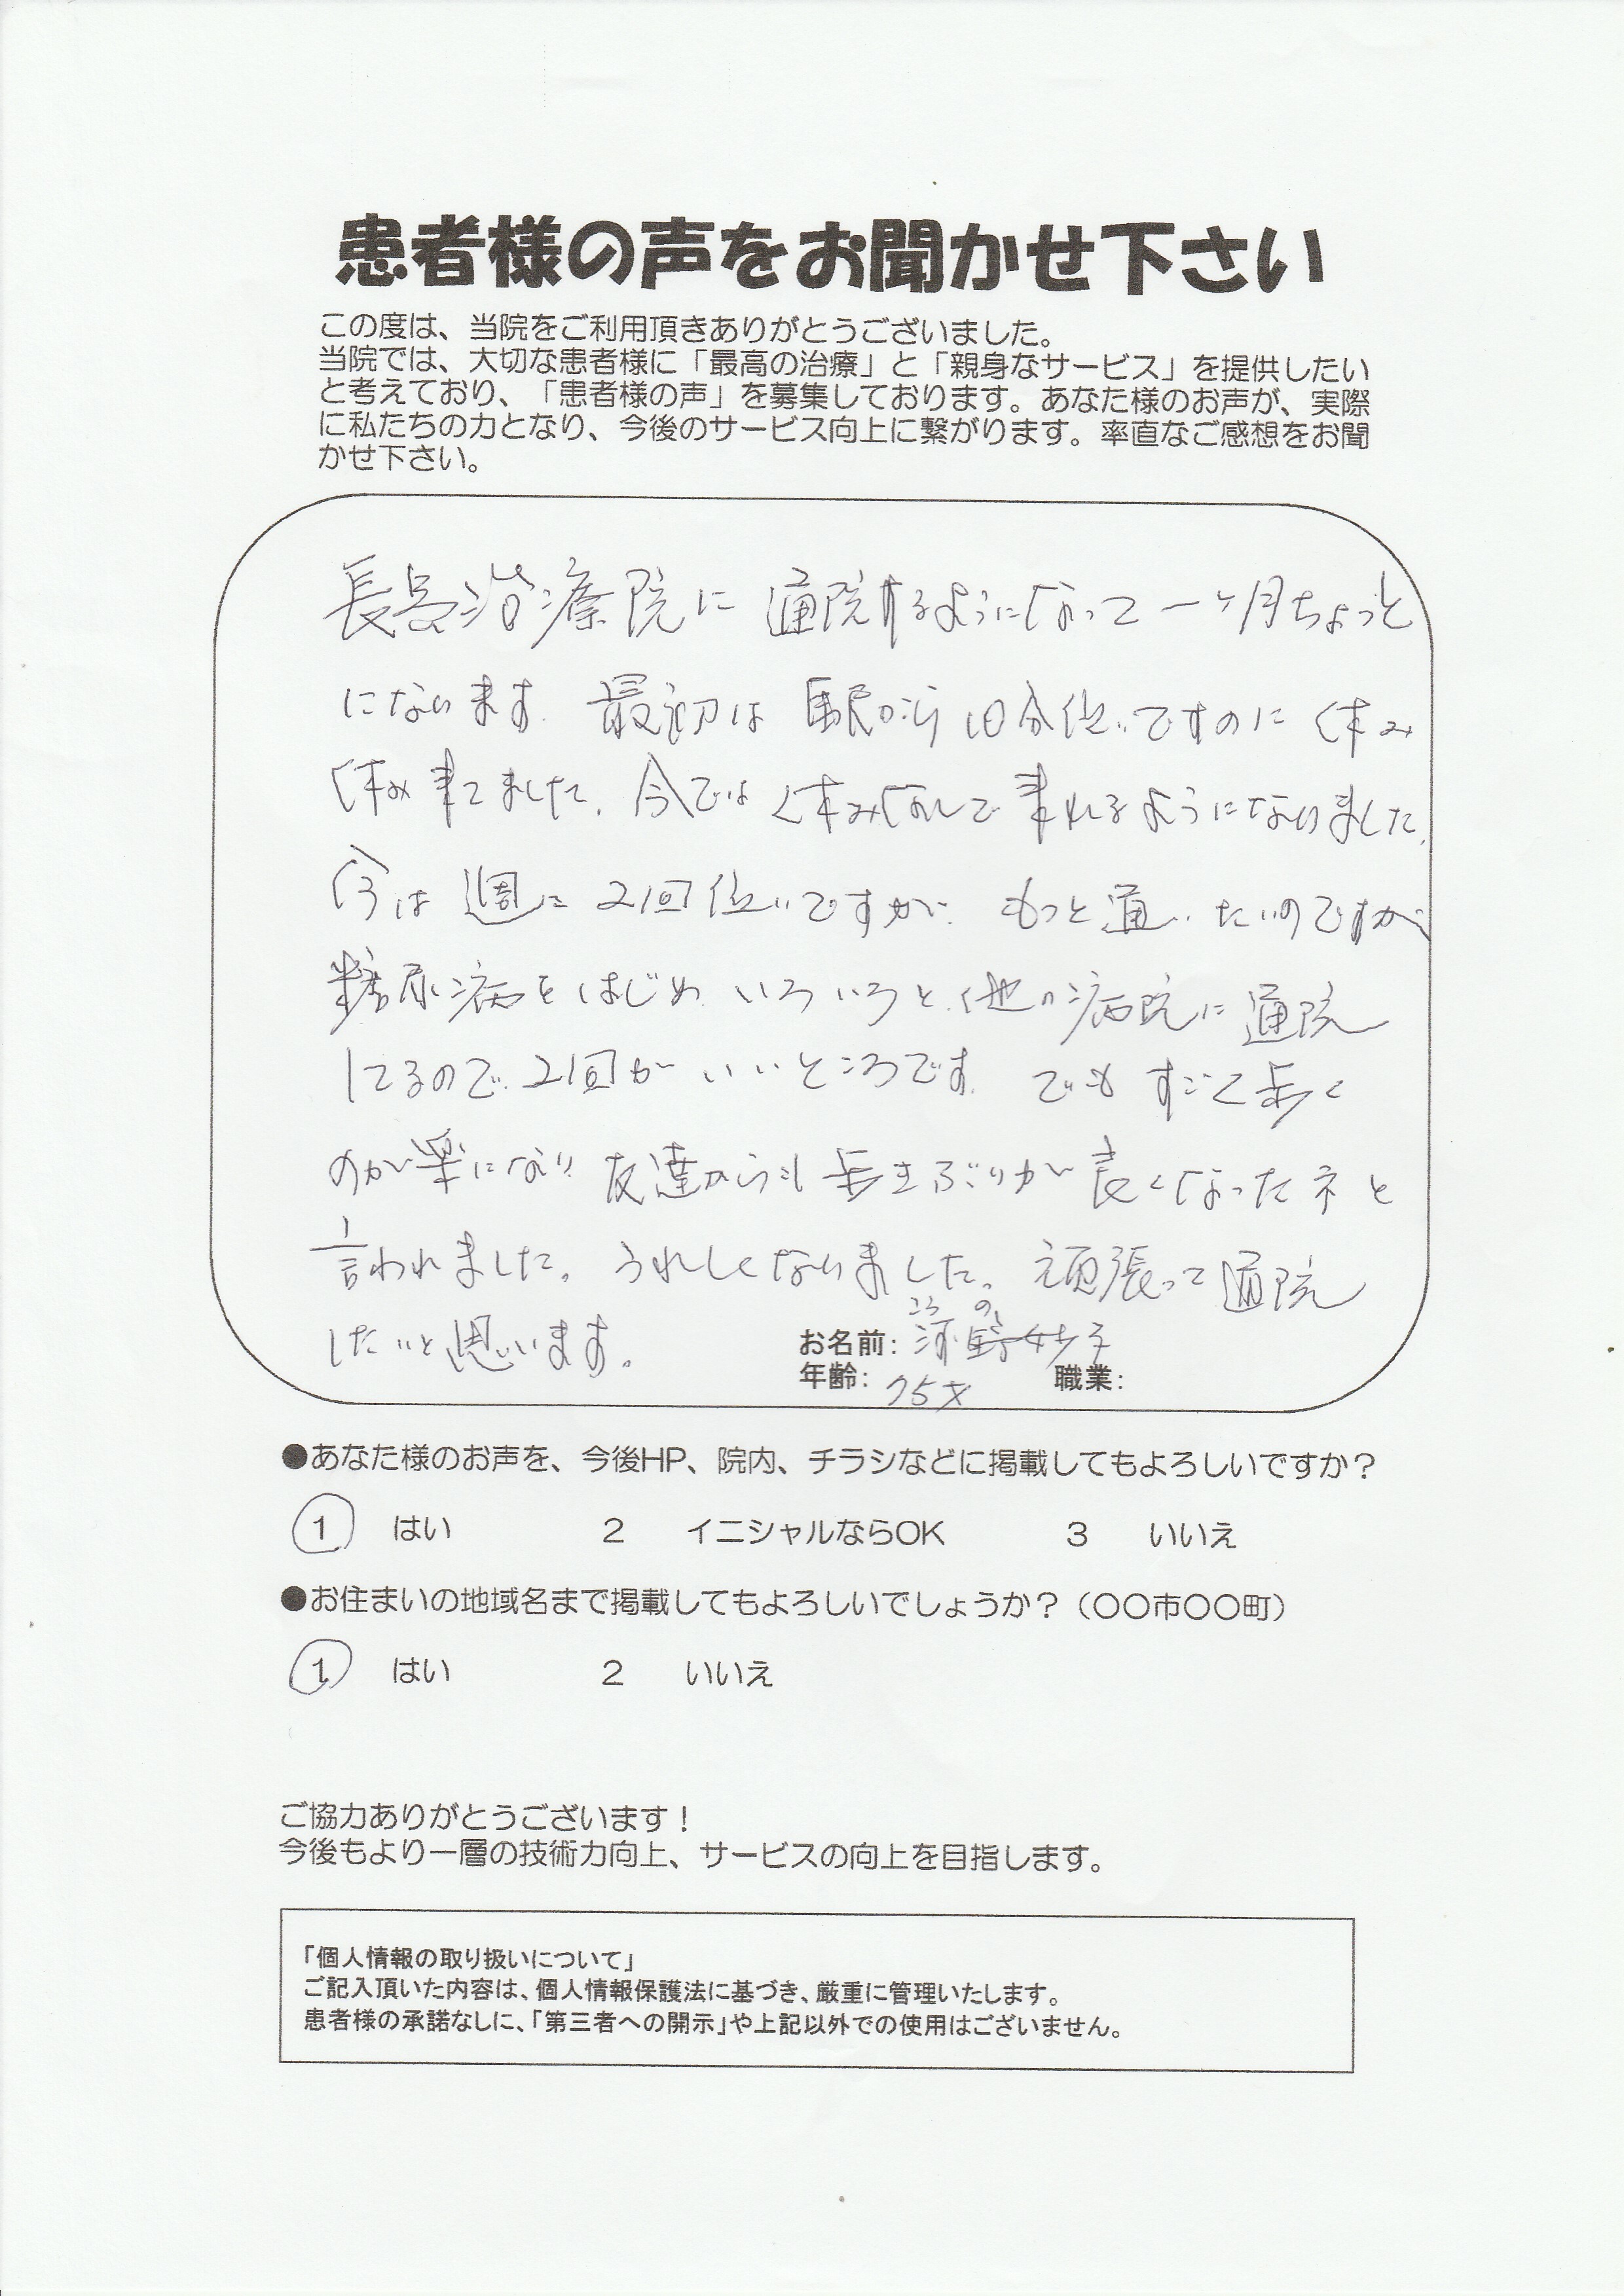 患者様の声をお聞かせ下さい
この度は、当院をご利用頂きありがとうございました。
当院では、大切な患者様に「最高の治療」と「親身なサービス」を提供したい
と考えており、「患者様の声」を募集しております。あなた様のお声が、実際
に私たちの力となり、今後のサービス向上に繋がります。率直なご感想をお聞
かせ下さい。
治療院に通院するようになって一ヶ月ちょっと
になります。最初は駅から10分位いですのに休み
休み来てました。今では休みなしで来れるようになりました。
今は週に2回位いですが、もっと通いたいのですが
糖尿病をはじめ、いろいろと他の病院に通院
してるので、2回がいいところです。でもすごく歩く
のが楽になり友達からも歩きぶりが良くなったネと
言われました。うれしくなりました。頑張って通院
したいと思います。
お名前: 河野妙子
年齢: 75才 職業:
●あなた様のお声を、今後HP、院内、チラシなどに掲載してもよろしいですか？
1 はい 2 イニシャルならOK 3 いいえ
●お住まいの地域名まで掲載してもよろしいでしょうか？（○○市○○町）
1 はい 2 いいえ
ご協力ありがとうございます！
今後もより一層の技術力向上、サービスの向上を目指します。
「個人情報の取り扱いについて」
ご記入頂いた内容は、個人情報保護法に基づき、厳重に管理いたします。
患者様の承諾なしに、「第三者への開示」や上記以外での使用はございません。